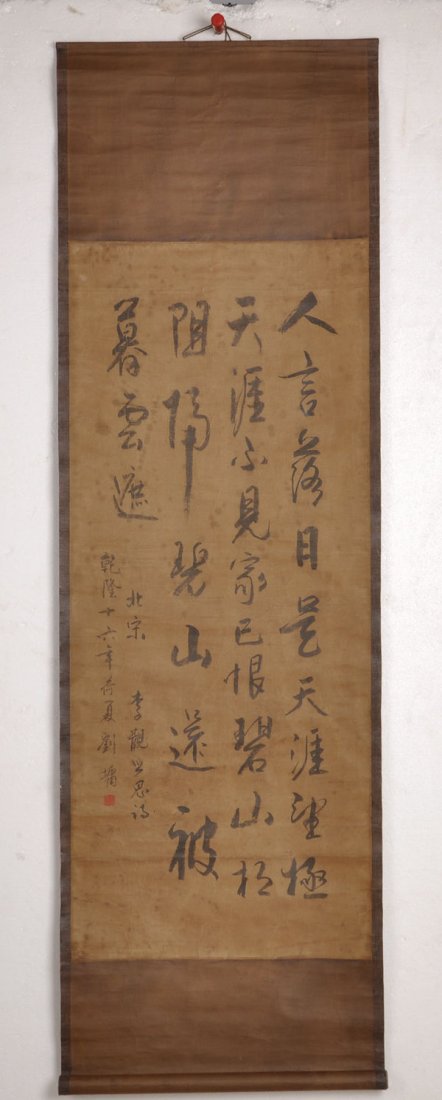 人言落日是天涯望極
天涯不見家已恨碧山相
阻隔碧山還被
暮雲遮
北宋 李觀之思詩
乾隆十六年荷夏劉墉